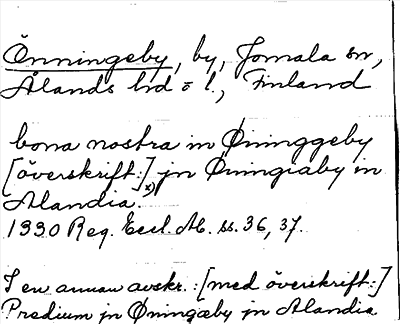 Önningeby, by, Jomala sn,
Ålands hd o l., Finland
bona nostra in Øninggeby
[överskrift:]x) jn Øningiaby in
Alandia.
1330 Reg. Eccl. Ab. ss. 36, 37.
I en annan avskr.: [med överskrift:]
Predium jn Øningæby jn Alandia